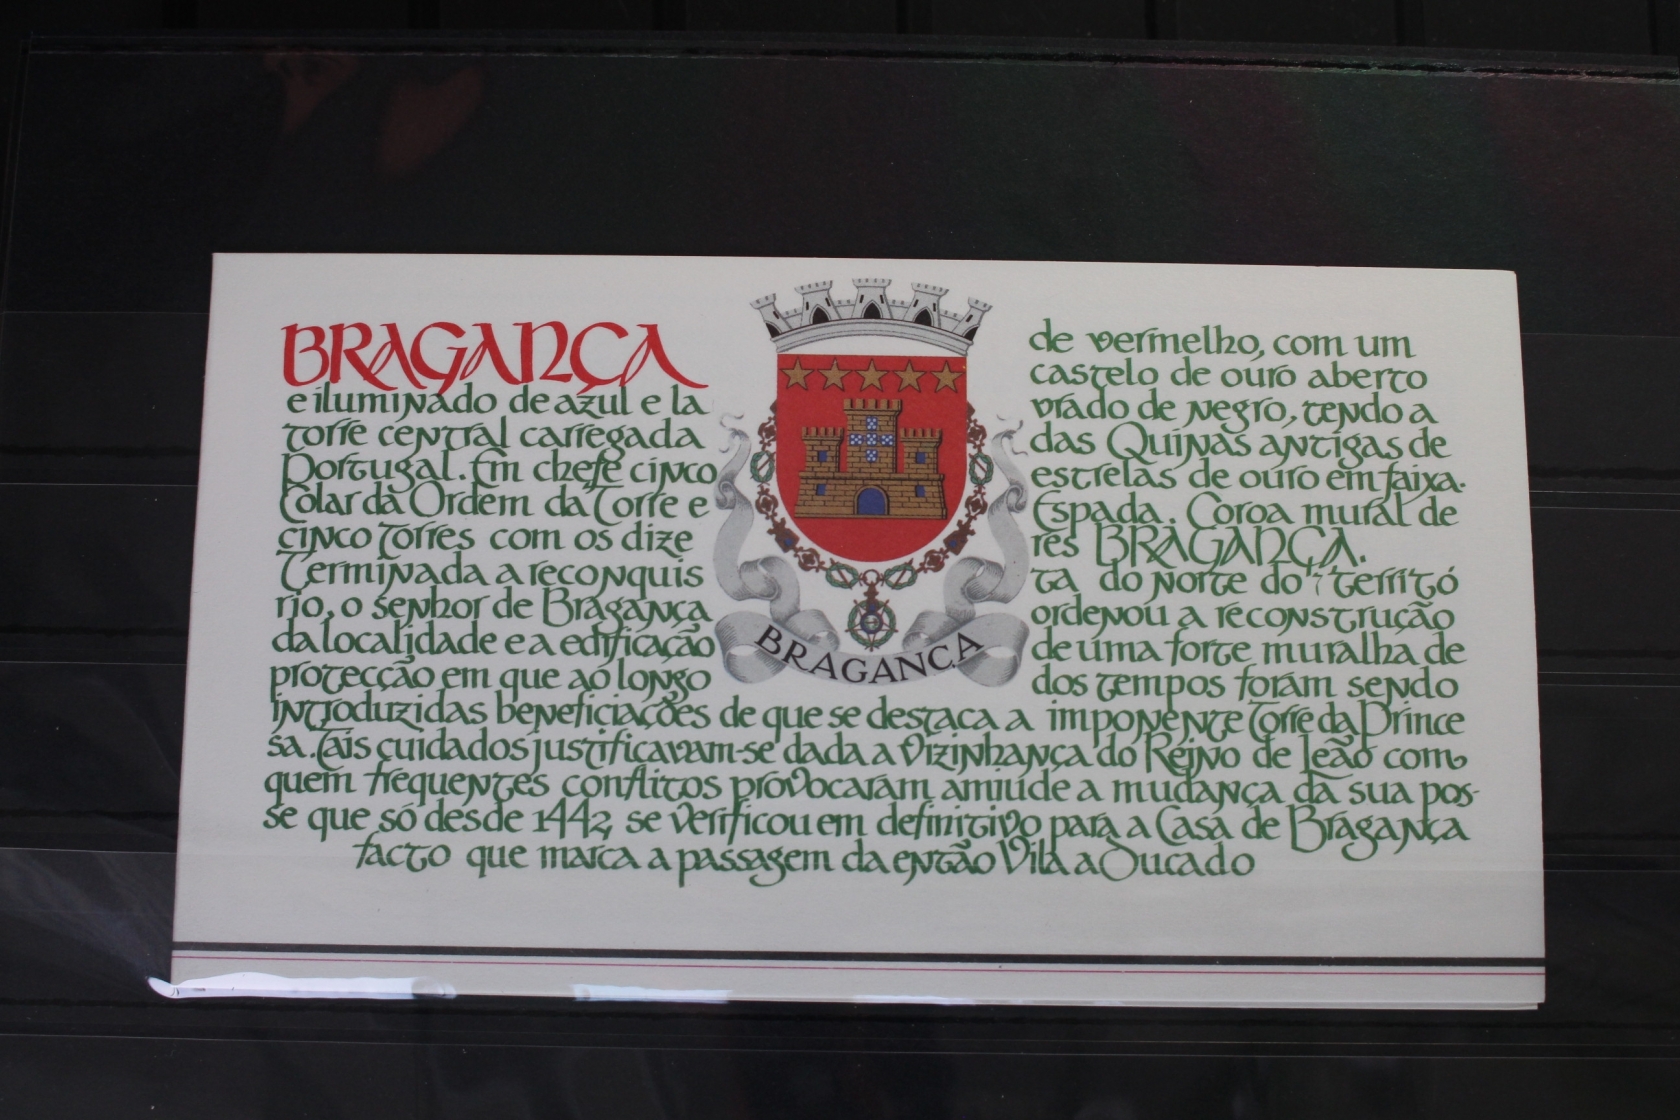 BRAGANÇA de vermelho, com um
castelo de ouro aberto
e iluminado de azul e la vrado de negro, tendo a
torre central carregada das Quinas antigas de
Portugal. Em chefe cinco estrelas de ouro em faixa.
Colar da Ordem da Torre e Espada. Coroa mural de
cinco torres com os dize res BRAGANÇA.
Terminada a reconquis ta do Norte do territó
rio, o senhor de Bragança ordenou a reconstrução
da localidade e a edificação de uma forte muralha de
protecção em que ao longo dos tempos foram sendo
introduzidas beneficiações de que se destaca a imponente Torre da Prince
sa. Tais cuidados justificavam-se dada a vizinhança do Reino de Leão com
quem frequentes conflitos provocaram amiúde a mudança da sua pos-
se que só desde 1442, se verificou em definitivo para a Casa de Bragança
facto que marca a passagem da então Vila a Ducado
BRAGANÇA